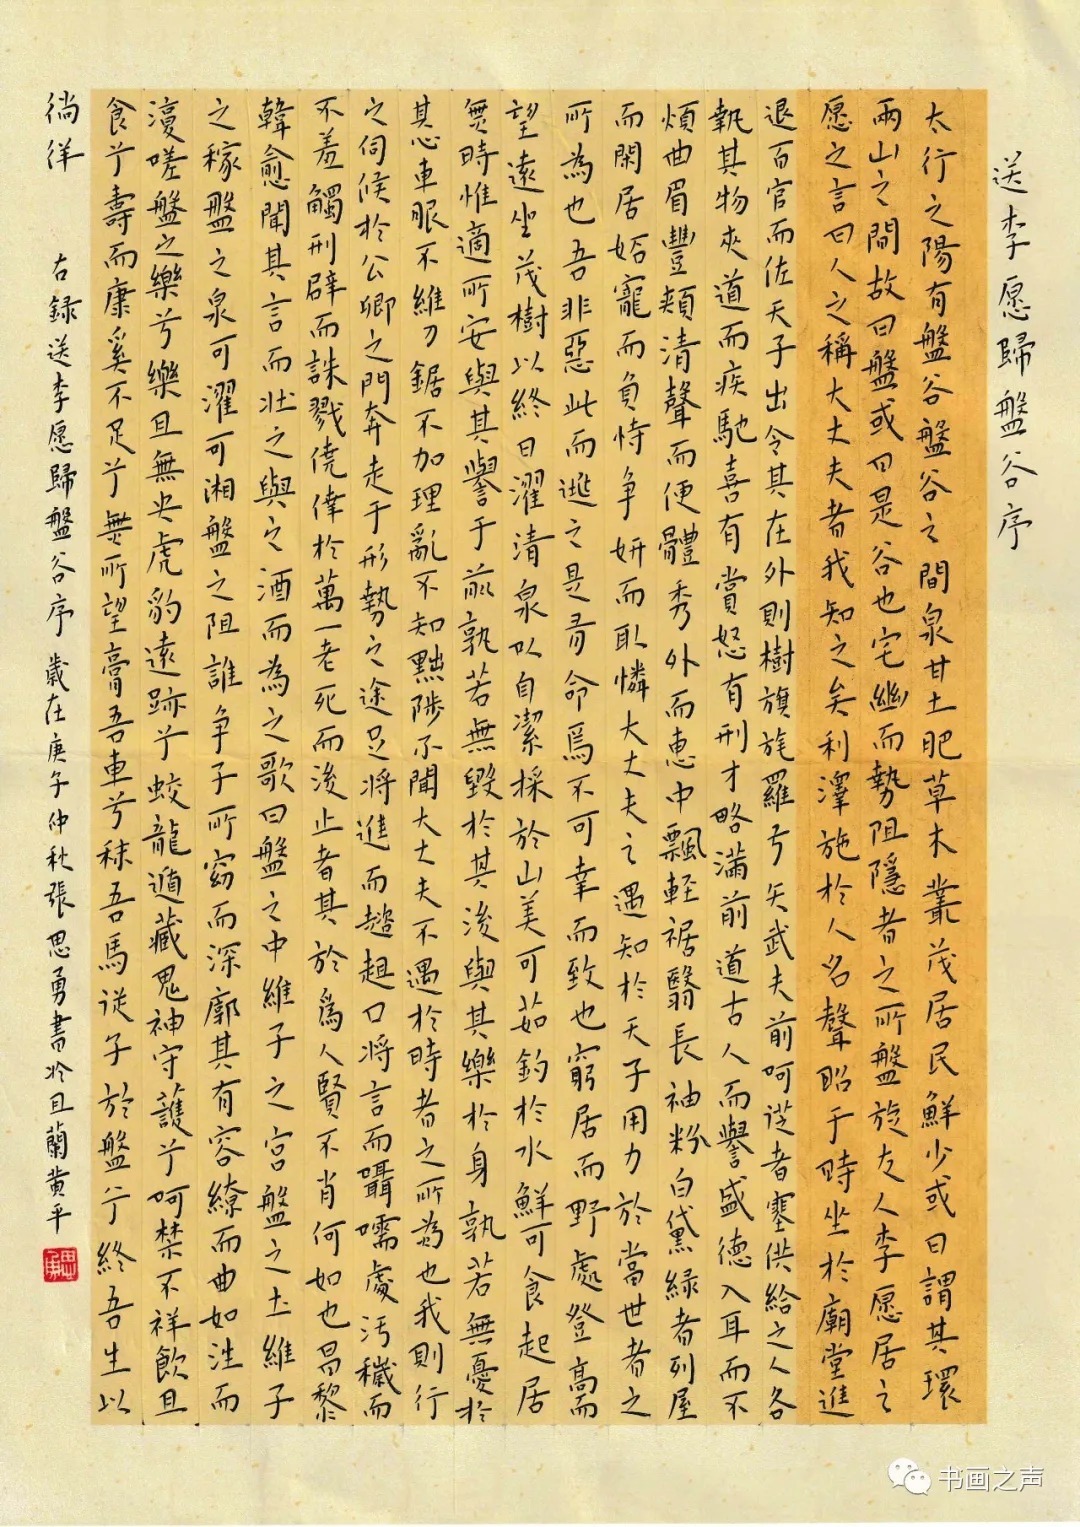 送李愿歸盤谷序
太行之陽有盤谷盤谷之間泉甘土肥草木叢茂居民鮮少或曰謂其環
兩山之間故曰盤或曰是谷也宅幽而勢阻隱者之所盤旋友人李愿居之
愿之言曰人之稱大丈夫者我知之矣利澤施於人名聲昭于時坐於廟堂進
退百官而佐天子出令其在外則樹旗旄羅弓矢武夫前呵從者塞供給之人各
執其物夾道而疾馳喜有賞怒有刑才略滿前道古人而譽盛德入耳而不
煩曲眉豐頰清聲而便體秀外而惠中飄輕裾翳長袖粉白黛綠者列屋
而閑居妬寵而負恃爭妍而取憐大丈夫之遇知於天子用力於當世者之
所為也吾非惡此而逃之是有命焉不可幸而致也窮居而野處登高而
望遠坐茂樹以終日濯清泉以自潔採於山美可茹釣於水鮮可食起居
無時惟適所安與其譽于前孰若無毀於其後與其樂於身孰若無憂於
其心車服不維刀鋸不加理亂不知黜陟不聞大丈夫不遇於時者之所為也我則行
之伺候於公卿之門奔走于形勢之途足將進而趦趄口將言而囁嚅處汚穢而
不羞觸刑辟而誅戮僥倖於萬一老死而後止者其於爲人賢不肖何如也昌黎
韓愈聞其言而壯之與之酒而為之歌曰盤之中維子之宮盤之土維子
之稼盤之泉可濯可湘盤之阻誰爭子所窈而深廓其有容繚而曲如往而
復嗟盤之樂兮樂且無央虎豹遠跡兮蛟龍遁藏鬼神守護兮呵禁不祥飲且
食兮壽而康奚不足兮無所望膏吾車兮秣吾馬從子於盤兮終吾生以
徜徉
右錄送李愿歸盤谷序 歲在庚子仲秋張思勇書於且蘭黄平
思勇
书画之声